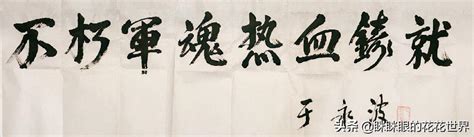 不朽軍魂热血鑄就
于永波
头条 @眯眯眼的花花世界